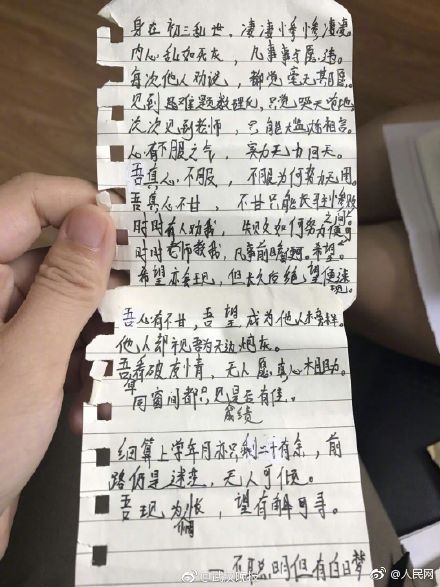 身在初三乱世，凄凄惨惨凄凄。
内心乱如死灰，凡事事与愿违。
每次他人劝说，都觉毫无期愿。
见到题难题数理化，只觉哭天喊地。
次次见到老师，只能尴尬相言。
心有不服之气，实力无力回天。
吾真心不服，不服为何努力无用。
吾真心不甘，不甘只能
时时有人助我，如何努力便可
时时老师教我，凡事前瞻希望。
希望亦会现，但长久后绝望便逐现。
吾心有不甘，吾望成为他人榜样。
他人却视吾为天边炮灰。
吾看破友情，无人愿真心相助。
同窗间都只见是否有佳成绩。
细算上学年月亦只剩二十有余，前
路仍是迷茫，无人可倾。
吾现为惆怅，望有解可寻。
不聪明但有白日梦
@武汉晚报
@人民网